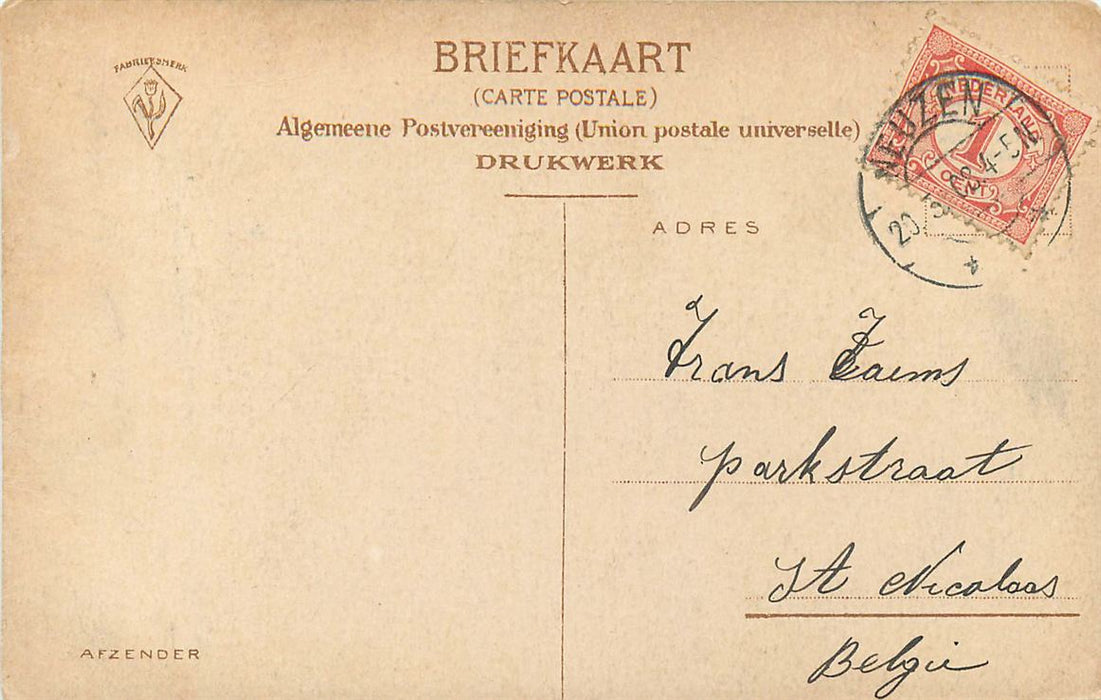 FABRIEKSMERK
BRIEFKAART
(CARTE POSTALE)
Algemeene Postvereeniging (Union postale universelle)
DRUKWERK
NEDERLAND
1
CENT
NEUZEN
20 08 4-5N
ADRES
Frans
parkstraat
St Nicolaas
België
AFZENDER